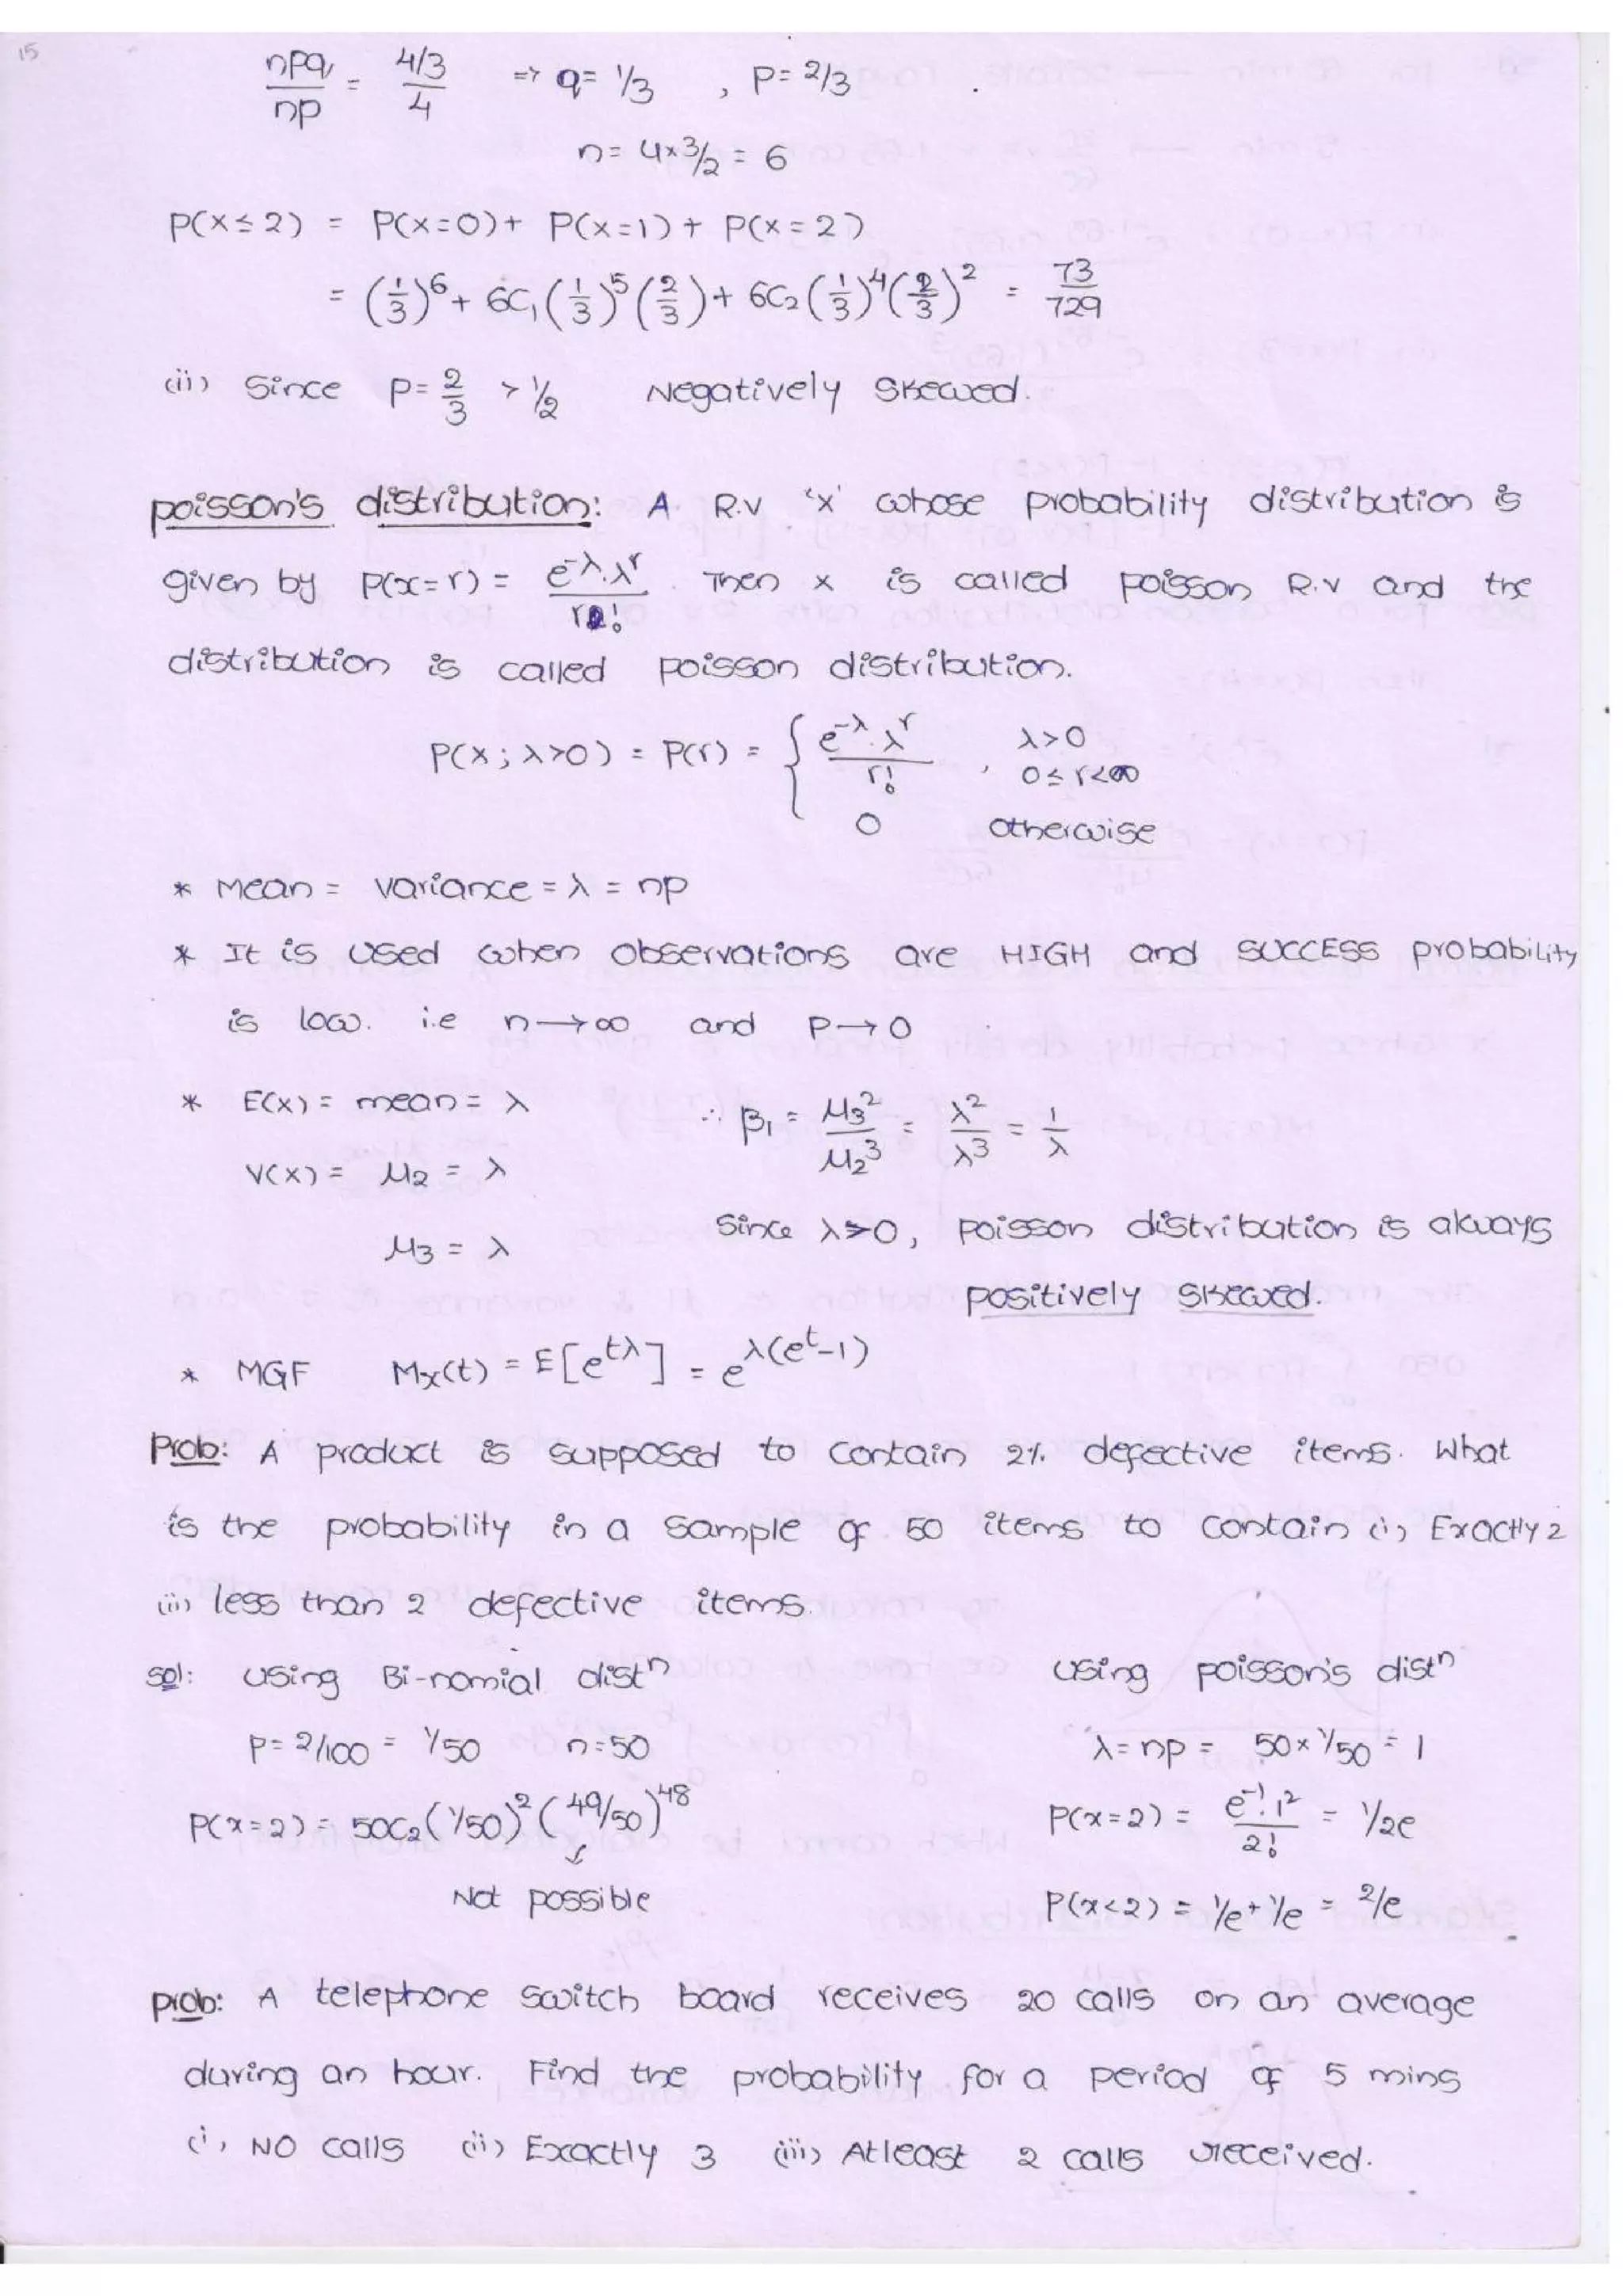 15
npq/np = (4/3)/4 => q = 1/3 , P = 2/3 .
n = 4×3/2 = 6
P(X ≤ 2) = P(X=0) + P(X=1) + P(X=2)
= (1/3)⁶ + 6C₁(1/3)⁵(2/3) + 6C₂(1/3)⁴(2/3)² = 73/729
(ii) Since P = 2/3 > 1/2 Negatively Skewed.
Poisson's distribution: A R.V 'X' whose probability distribution is
given by P(x=r) = e^-λ.λ^r/r! . Then X is called poisson R.V and the
distribution is called poisson distribution.
P(X; λ>0) = P(r) = { e^-λ.λ^r/r! , λ>0
0≤r<∞
0 otherwise
* Mean = variance = λ = np
* It is used when observations are HIGH and SUCCESS probability
is low. i.e n→∞ and P→0
* E(X) = mean = λ ∴ β₁ = μ₃²/μ₂³ = λ²/λ³ = 1/λ
V(X) = μ₂ = λ
μ₃ = λ
Since λ>0, poisson distribution is always
positively skewed.
* MGF Mx(t) = E[e^tλ] = e^λ(e^t-1)
Prob: A product is supposed to contain 2% defective items. What
is the probability in a sample of 50 items to contain (i) Exactly 2
(ii) less than 2 defective items.
Sol: Using Bi-nomial distⁿ Using poisson's distⁿ
P = 2/100 = 1/50 n=50 λ = np = 50×1/50 = 1
P(x=2) = 50C₂(1/50)²(49/50)⁴⁸ P(x=2) = e⁻¹.1²/2! = 1/2e
↓
Not possible P(x<2) = 1/e + 1/e = 2/e
Prob: A telephone switch board receives 20 calls on an average
during an hour. Find the probability for a period of 5 mins
(i) NO calls (ii) Exactly 3 (iii) Atleast 2 calls received.